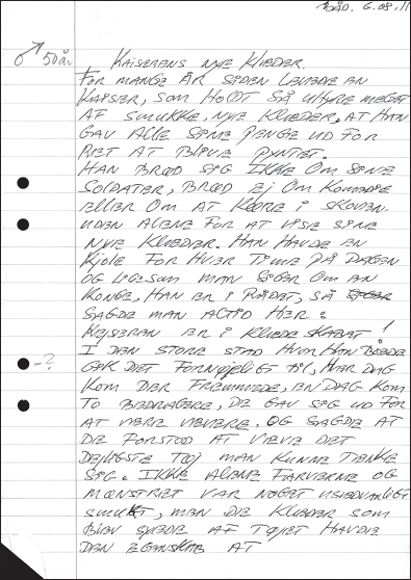 6.08.11
♂ 50 år
KAISERENS NYE KLÆDER.
FOR MANGE ÅR SIDEN LEVEDE EN
KAISER, SOM HOLDT SÅ UHYRE MEGET
AF SMUKKE, NYE KLÆDER, AT HAN
GAV ALLE SINE PENGE UD FOR
RET AT BLIVE PYNTET.
HAN BRØD SIG IKKE OM SINE
SOLDATER, BRØD EJ OM KOMEDIE
ELLER OM AT KØRE I SKOVEN.
UDEN ALENE FOR AT VISE SINE
NYE KLÆDER. HAN HAVDE EN
KJOLE FOR HVER TIME PÅ DAGEN
OG LIGESOM MAN SIGER OM EN
KONGE, HAN ER I RÅDET, SÅ
SAGDE MAN ALTID HER:
KEJSEREN ER I KLÆDESKABET!
I DEN STORE STAD HVOR HAN BOEDE
-?
GIK DET FORNØJELIGT TIL, HVER DAG
KOM DER FREMMEDE, EN DAG KOM
TO BEDRAGERE, DE GAV SIG UD FOR
AT VÆRE VÆVERE, OG SAGDE AT
DE FORSTOD AT VÆVE DET
DEJLIGSTE TØJ MAN KUNNE TÆNKE
SIG. IKKE ALENE FARVERNE OG
MØNSTRET VAR NOGET USÆDVANLIGT
SMUKT, MEN DE KLÆDER SOM
BLEV SYEDE AF TØJET HAVDE
DEN EGENSKAB AT